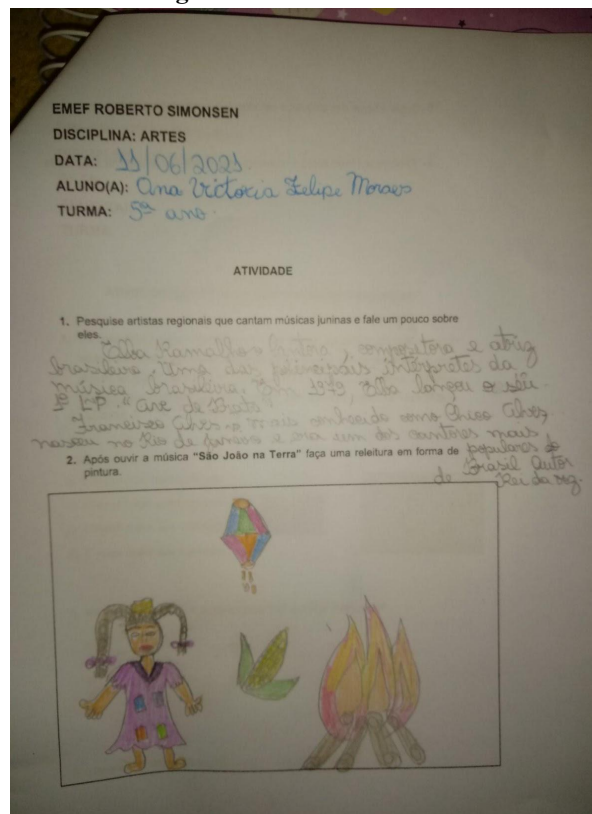 EMEF ROBERTO SIMONSEN
DISCIPLINA: ARTES
DATA: 11/06/2021
ALUNO(A): Ana Victoria Felipe Moraes
TURMA: 5º ano
ATIVIDADE
1. Pesquise artistas regionais que cantam músicas juninas e fale um pouco sobre
eles.
Elba Ramalho Cantora, compositora e atriz
brasileira. Uma das principais intérpretes da
música brasileira. Em 1979, Elba lançou o seu
1º LP. "Ave de Prata"
Francisco Alves mais conhecido como Chico Alves,
nasceu no Rio de Janeiro e era um dos cantores mais
populares do
2. Após ouvir a música "São João na Terra" faça uma releitura em forma de
pintura.
Brasil
de Rei da voz.